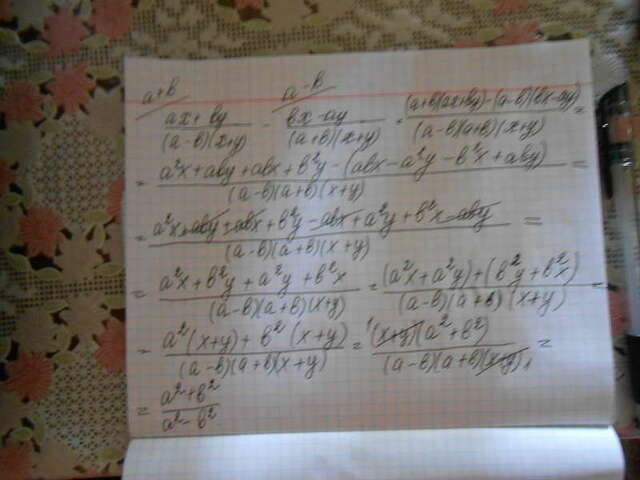 a+b/ a-b/
(ax+by)/((a-b)(x+y)) - (bx-ay)/((a+b)(x+y)) = ((a+b)(ax+by)-(a-b)(bx-ay))/((a-b)(a+b)(x+y)) =
= (a²x+aby+abx+b²y-(abx-a²y-b²x+aby))/((a-b)(a+b)(x+y)) =
= (a²x+aby+abx+b²y-abx+a²y+b²x-aby)/((a-b)(a+b)(x+y)) =
= (a²x+b²y+a²y+b²x)/((a-b)(a+b)(x+y)) = ((a²x+a²y)+(b²y+b²x))/((a-b)(a+b)(x+y)) =
= (a²(x+y)+b²(x+y))/((a-b)(a+b)(x+y)) = ¹(x+y)(a²+b²)/((a-b)(a+b)(x+y)₁) =
= (a²+b²)/(a²-b²)